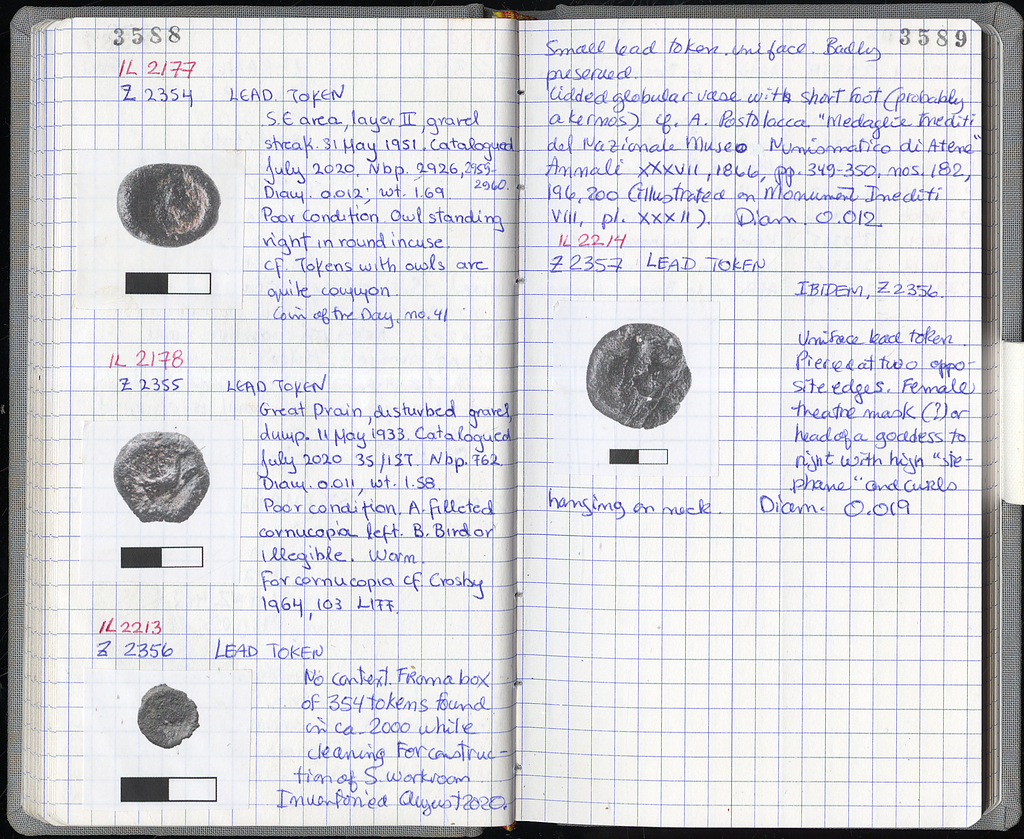 3588
IL 2177
Z 2354 LEAD TOKEN
S.E area, layer II, gravel
streak. 31 May 1951. Catalogued
July 2020. Nbp. 2926, 2959-
2960.
Diam. 0.012; wt. 1.69
Poor condition. Owl standing
right in round incuse.
cf. Tokens with owls are
quite common.
Coin of the Day, no. 41
IL 2178
Z 2355 LEAD TOKEN
Great Drain, disturbed gravel
dump. 11 May 1933. Catalogued
July 2020 35/IST. Nbp. 762
Diam. 0.011, wt. 1.58.
Poor condition. A. filleted
cornucopia left. B. Bird or
illegible. Worn.
For cornucopia cf. Crosby
1964, 103 L177.
IL 2213
Z 2356 LEAD TOKEN
No context. From a box
of 354 tokens found
in ca. 2000 while
cleaning for construc-
tion of S. workroom
Inventoried August 2020.
3589
Small lead token. uniface. Badly
preserved.
Lidded globular vase with short foot (probably
a kernos) cf. A. Postolacca "Medaglie Inediti
del Nazionale Museo Numismatico di Atene"
Annali XXXVII, 1866, pp. 349-350, nos. 182,
196, 200 (illustrated on Monument Inediti
VIII, pl. XXXII). Diam. 0.012
IL 2214
Z 2357 LEAD TOKEN
IBIDEM, Z 2356.
Uniface lead token.
Pierced at two oppo-
site edges. Female
theatre mask (?) or
head of a goddess to
right with high "ste-
phane" and curls
hanging on neck. Diam. 0.019